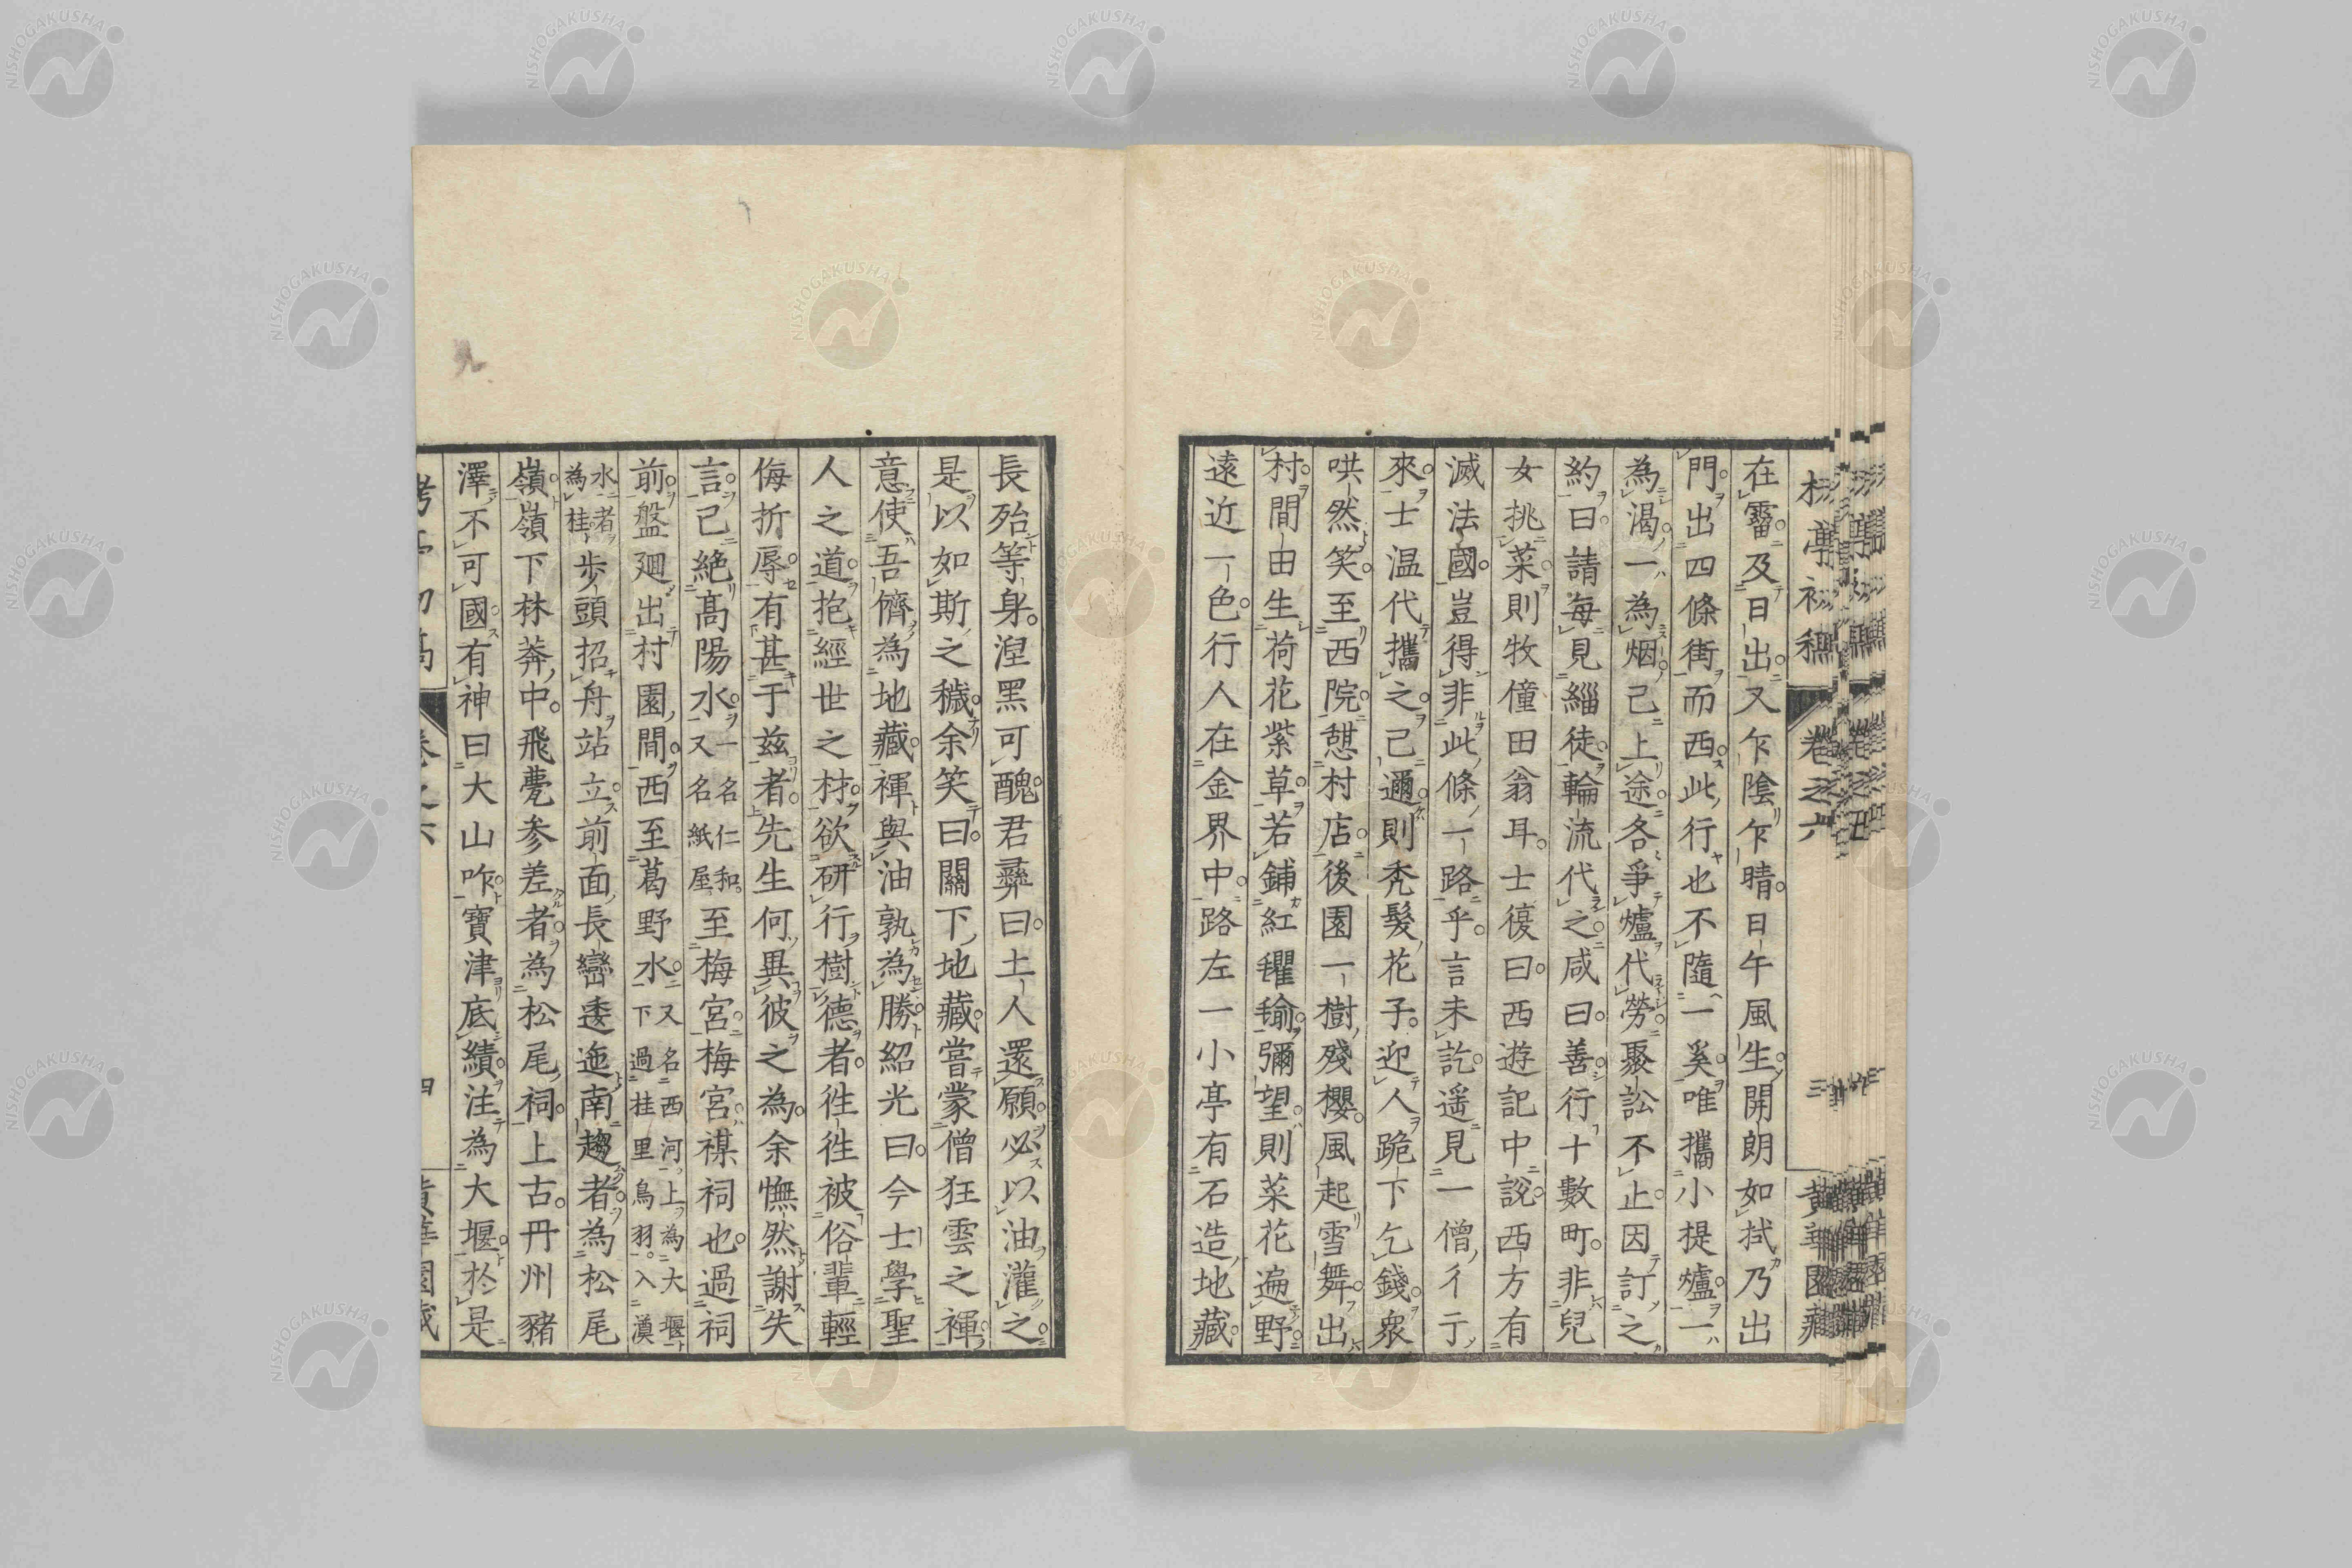 在霤及日出又乍陰乍晴日午風生開朗如拭乃出
門出四條街而西此行也不隨一奚唯攜小提爐一
為渴一為烟已上途各爭爐代勞聚訟不止因訂之
約曰請每見緇徒輪流代之咸曰善行十數町非兒
女挑菜則牧僮田翁耳士復曰西遊記中說西方有
滅法國豈得非此條一路乎言未訖遥見一僧彳亍
來士温代攜之已邇則秃髮花子迎人跪下乞錢衆
哄然笑至西院憇村店後園一樹殘櫻風起雪舞出
村間由生荷花紫草若鋪紅氍毹彌望則菜花遍野
遠近一色行人在金界中路左一小亭有石造地藏
卷之六
三
長殆等身涅黑可醜君彞曰土人還願必以油灌之
是以如斯之穢余笑曰關下地藏嘗蒙僧狂雲之褌
意使吾儕為地藏褌與油孰為勝紹光曰今士學聖
人之道抱經世之材欲研行樹德者徃徃被俗輩輕
侮折辱有甚于兹者先生何異彼之為余憮然謝失
言已絶髙陽水一名仁和又名紙屋至梅宮梅宮禖祠也過祠
前盤廻出村園間西至葛野水又名西河上為大堰下過桂里鳥羽入澱
水者為桂步頭招舟站立前面長巒逶迤南趨者為松尾
嶺嶺下林莽中飛甍参差者為松尾祠上古丹州豬
澤不可國有神曰大山咋寶津底績注為大堰於是
四